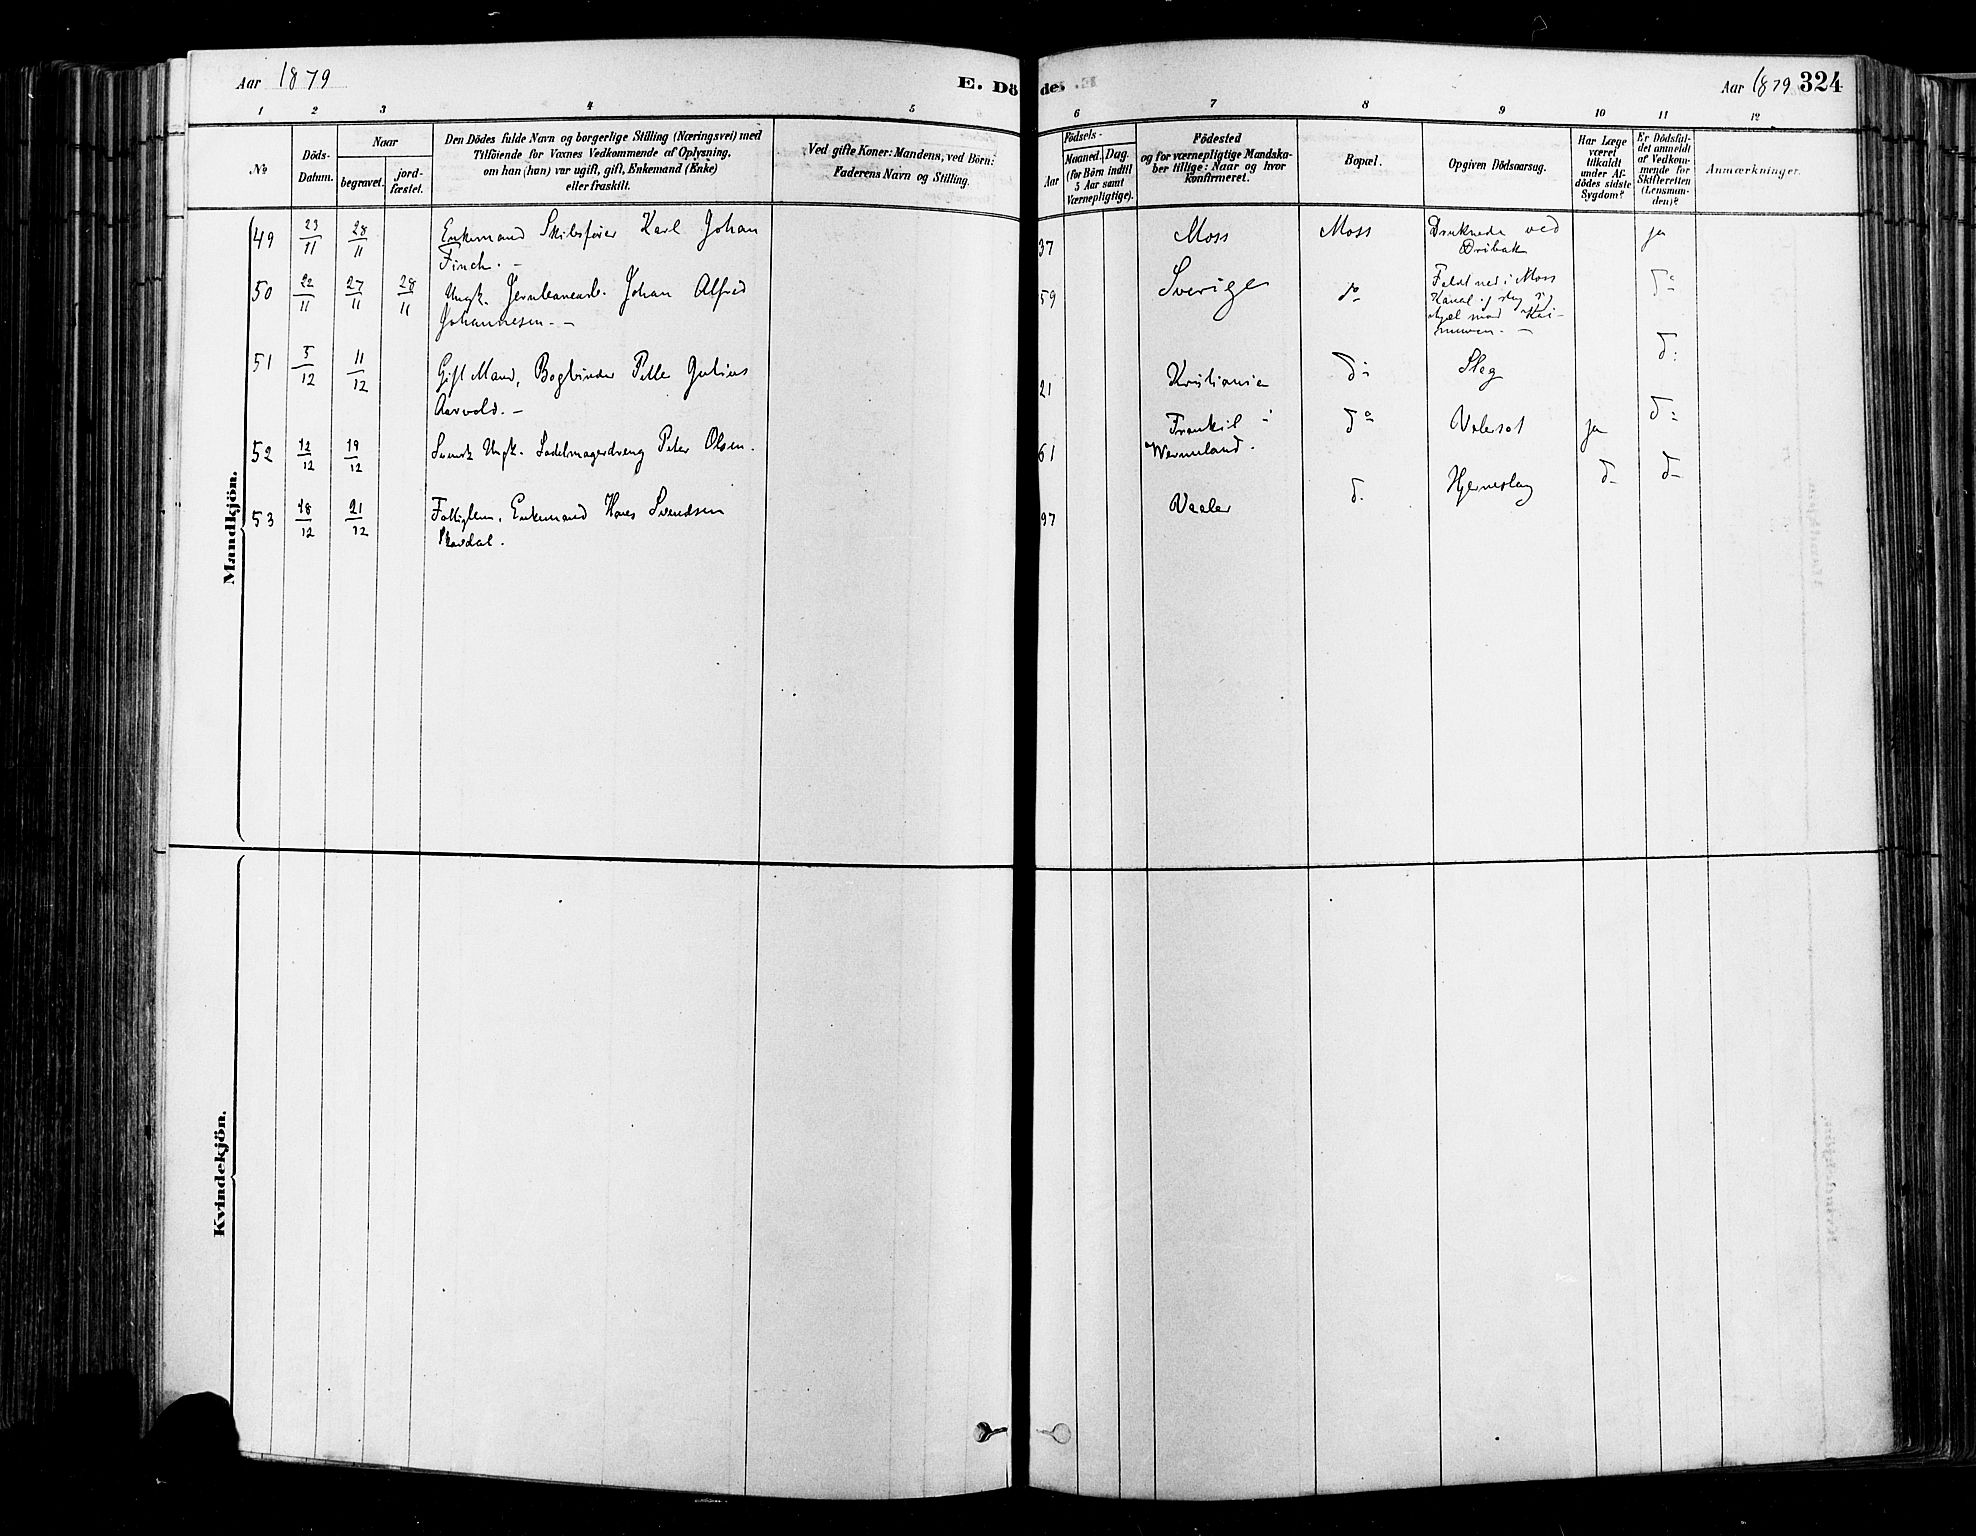 Aar 1879
E. Dö
de.
Aar 1879 324
1 2 3 4 5 6 7 8 9 10 11 12
No
Döds-
Datum.
Naar
begravet.
jord-
fæstet.
Den Dödes fulde Navn og borgerlige Stilling (Næringsvei) med
Tilföiende for Voxnes Vedkommende af Oplysning,
om han (hun) var ugift, gift, Enkemand (Enke)
eller fraskilt.
Ved gifte Koner: Mandens, ved Börn:
Faderens Navn og Stilling.
Födsels-
Aar
Maaned. Dag.
(for Börn indtil
5 Aar samt
Værnepligtige).
Födested
og for værnepligtige Mandska-
ber tillige: Naar og hvor
konfirmeret.
Bopæl.
Opgiven Dödsaarsag.
Har Læge
været
tilkaldt
under Af-
dödes sidste
Sygdom?
Er Dödsfal-
det anmeldt
af Vedkom-
mende for
Skifteretten
(Lensman-
den)?
Anmærkninger.
Mandkjön.
49 23/11 28/11 Enkemand Skibsfører Karl Johan
Finck. -
37 Moss Moss Druknede ved
Drøbak
ja
50 22/11 27/11 28/11 Ungk. Jernbanearb. Johan Alfred
Johannesen. -
59 Sverige do Faldt ned i Moss
Kanal og slog sig
ihjel mod Kai-
muren. -
do
51 5/12 11/12 Gift Mand, Bogbinder Julius
Aarvold. -
21 Kristiania do Slag do
52 12/12 19/12 Svensk Ungk. Sadelmagerdreng Peter Olsen.
61 i
Wermeland. do Vatersot ja do
53 18/12 21/12 Fattiglem, Enkemand Hans Svendsen
97 Vaaler d. Hjerneslag d- d-
Kvindekjön.